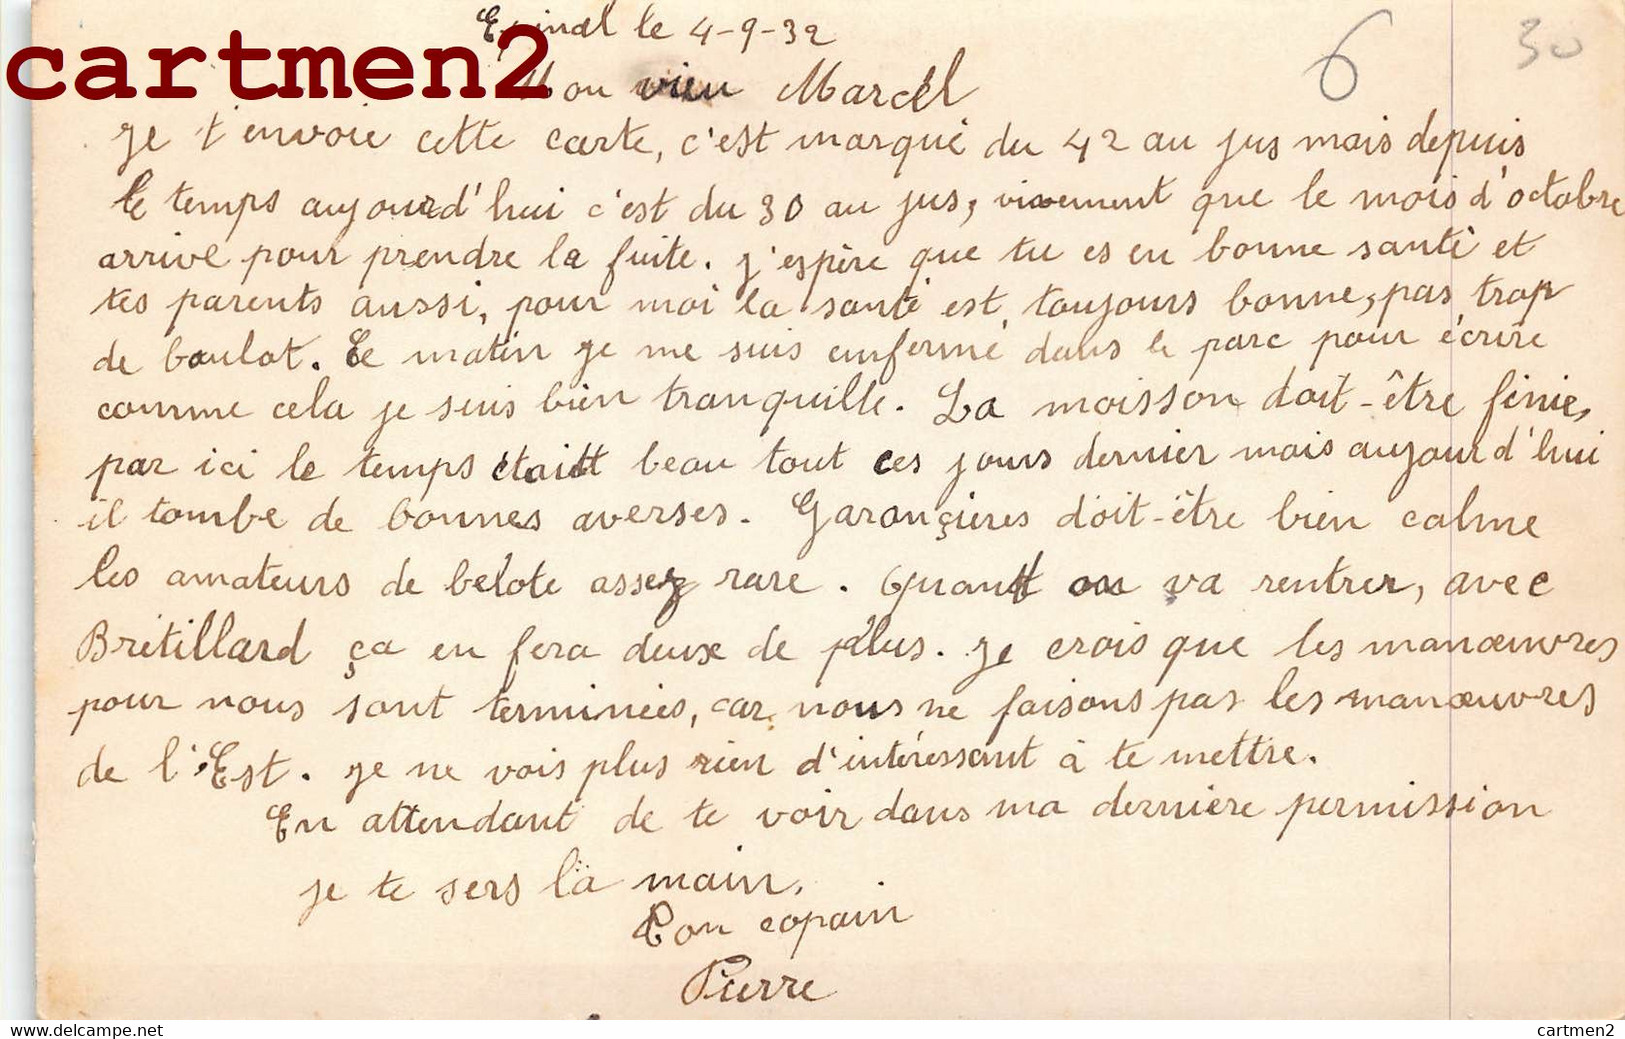 Epinal le 4-9-32
cartmen2
Mon vieu Marcel
Je t'envoie cette carte, c'est marqué du 42 au jus mais depuis
le temps aujourd'hui c'est du 30 au jus, vivement que le mois d'octobre
arrive pour prendre la fuite. J'espère que tu es en bonne santé et
tes parents aussi, pour moi la santé est toujours bonne, pas trop
de boulot. Ce matin je me suis enfermé dans le parc pour écrire
comme cela je suis bien tranquille. La moisson doit-être finie,
par ici le temps était beau tout ces jours dernier mais aujourd'hui
il tombe de bonnes averses. Garançières doit-être bien calme
les amateurs de belote assez rare. Quant on va rentrer, avec
Brétillard ça en fera deux de plus. Je crois que les manœuvres
pour nous sont terminées, car nous ne faisons pas les manœuvres
de l'Est. Je ne vois plus rien d'intéressant à te mettre.
En attendant de te voir dans ma dernière permission
je te sers la main.
Ton copain
Pierre
6
30
www.delcampe.net
cartmen2